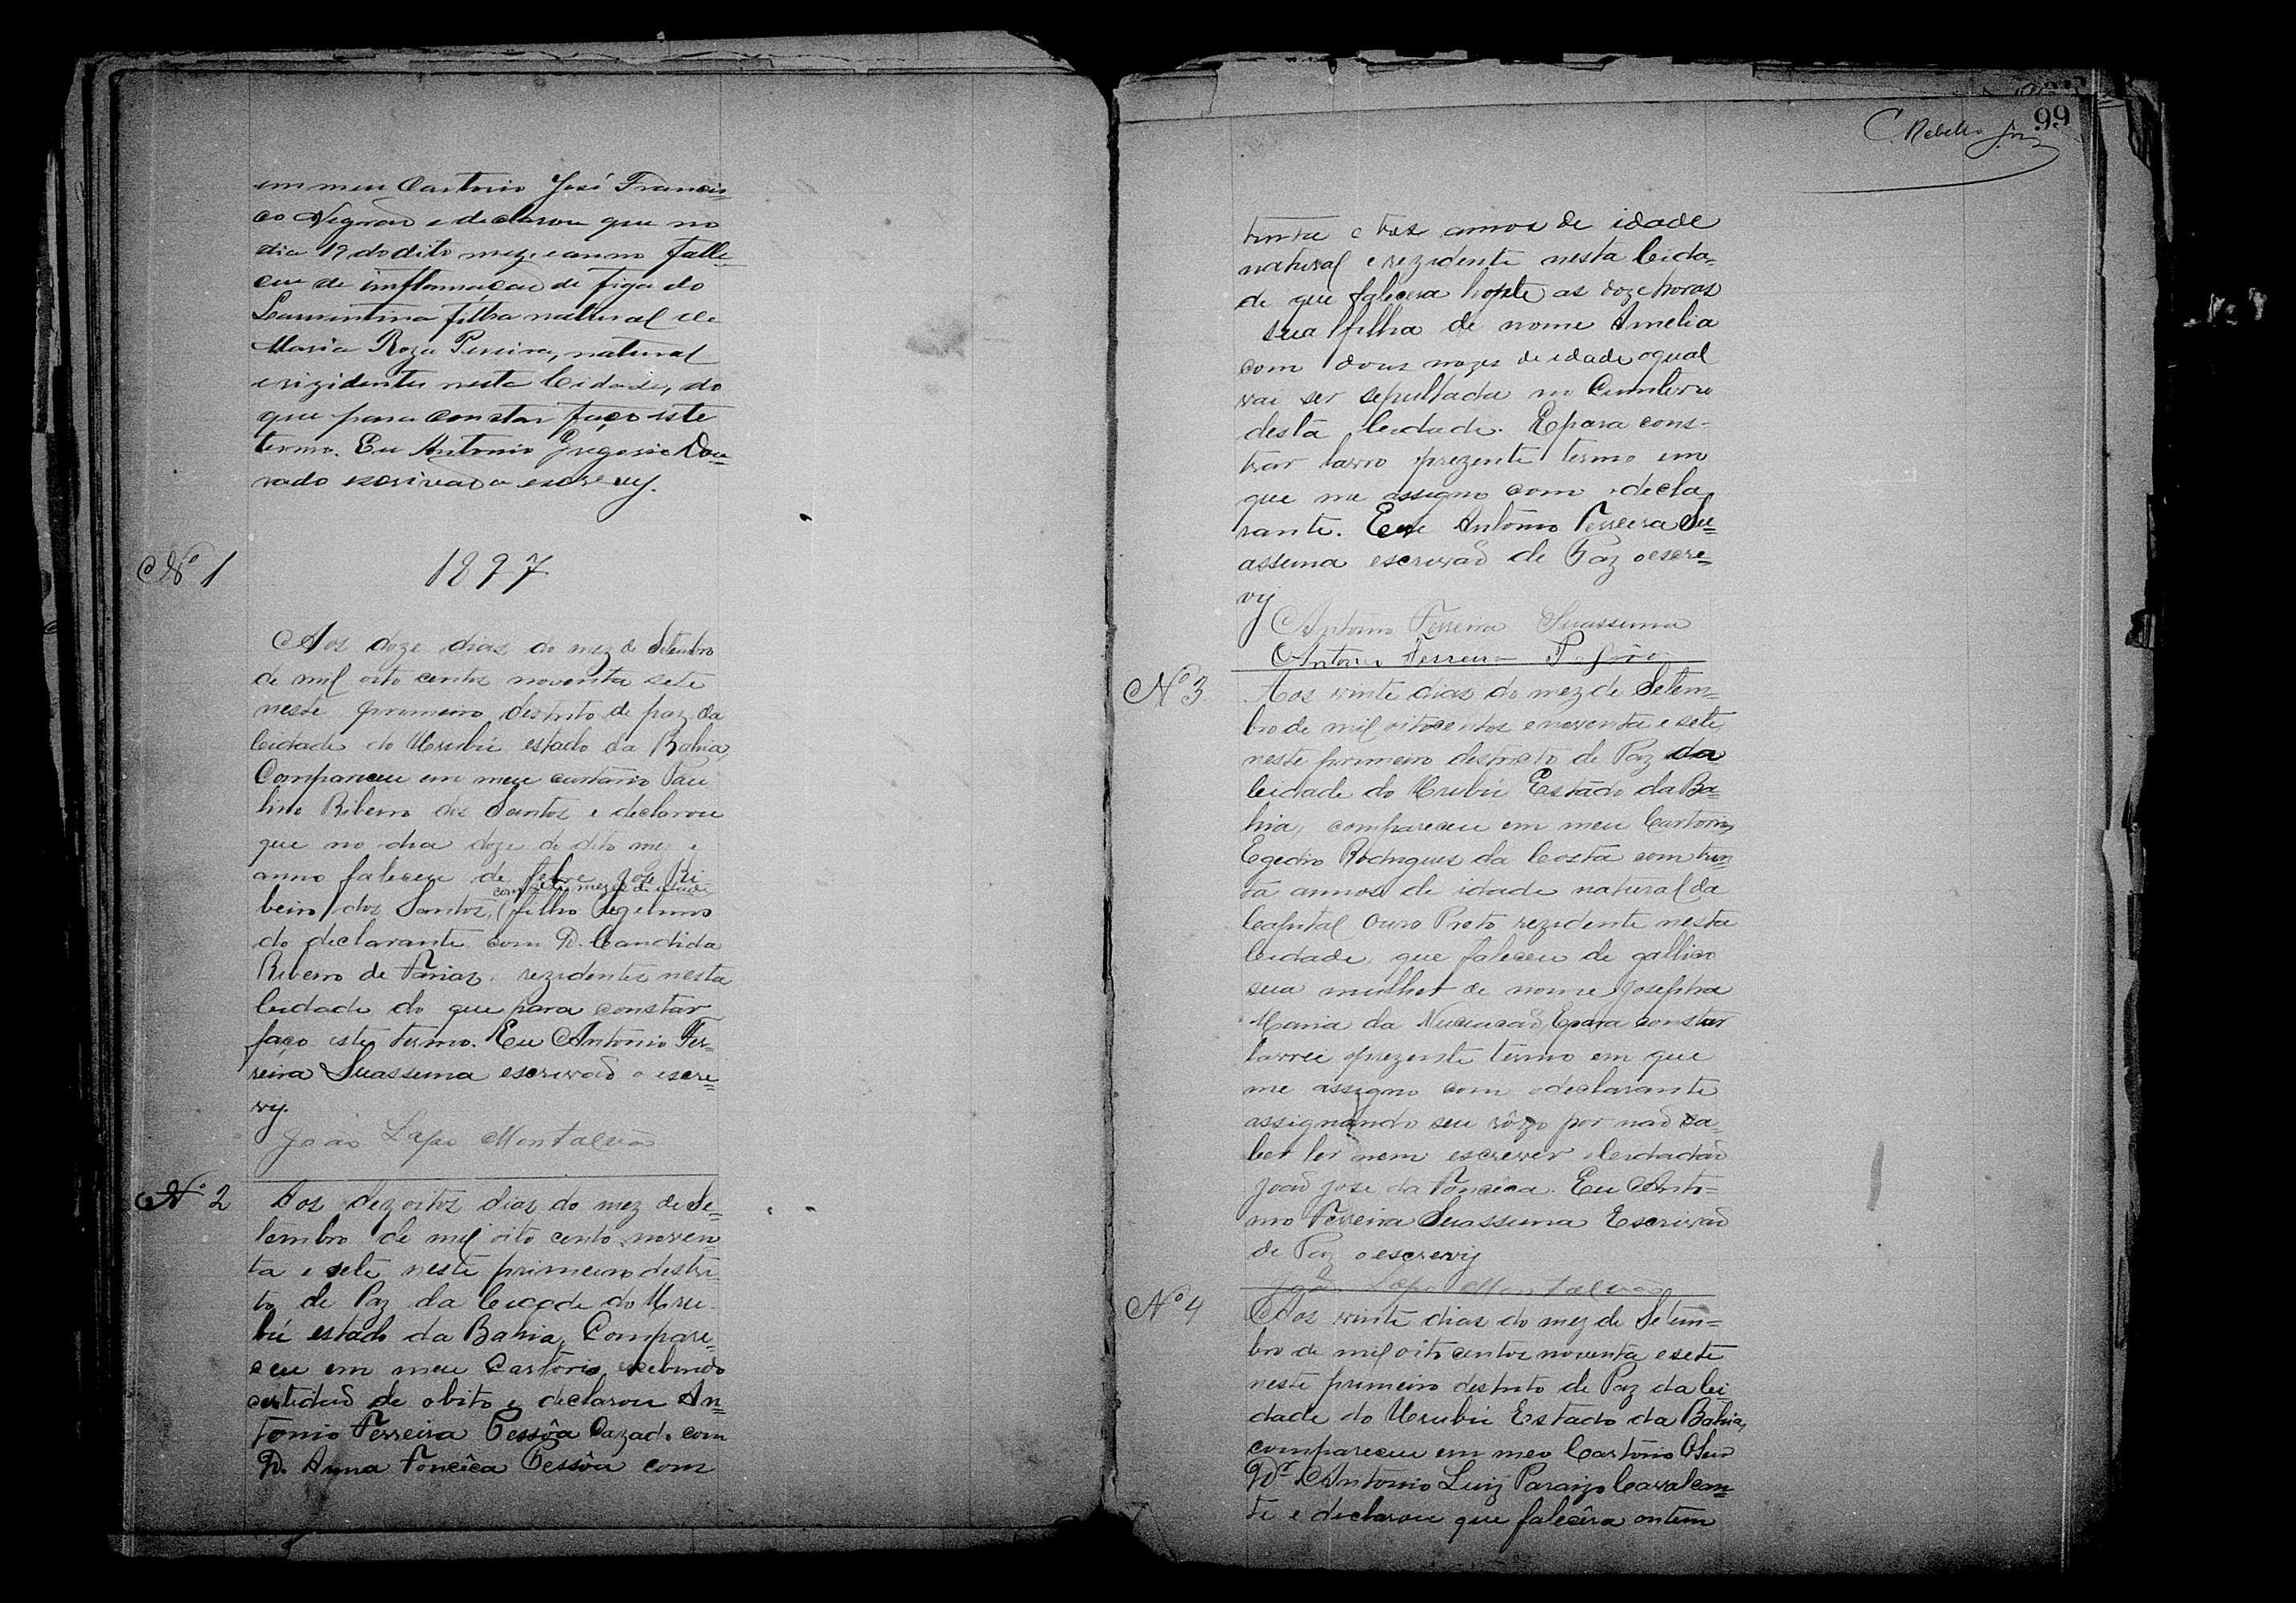 em meu Cartorio José Francis=
co Negrão e declarou que no
dia 19 do dito mez e anno falle=
ceu de imflamação de figado
Laurentina filha natural de
Maria Roza Pereira, natural
e rizidentes nesta Cidade, do
que para constar faço este
termo. Eu Antonio Gregorio Dou=
rado escrivão o escrevy.
Nº 1
1897
Aos doze dias do mez de Setembro
de mil oito centos noventa sete
neste primeiro destrito de paz da
Cidade do Urubú estado da Bahia,
Compareceu em meu cartorio Pau
lino Ribeiro dos Santos e declarou
que no dia doze do dito mez e
anno faleceu de febre José Ri
com sete mezes de idade
beiro dos Santos, filho legitimo
do declarante com D. Candida
Ribeiro de Farias, rezidentes nesta
Cidade do que para constar
faço este termo. Eu Antonio Fer=
reira Suassuna escrivão o escre=
vy.
João Lapa Montalvão
Nº 2
Aos dezoitos dias do mez de Se=
tembro de mil oito cento noven=
ta e sete neste primeiro destri=
to de Paz da Cidade do Uru=
bú estado da Bahia, Compare=
ceu em meu Cartorio
certidão de obito e declarou An=
tonio Ferreira Pessôa Cazado com
D. Anna Foncêca Pessôa com
99
C. Rebello Jor
trinta e tres annos de idade
natural e rezidente nesta Cida=
de que falecera as doze horas
sua filha de nome Amelia
com dous mezes de idade o qual
vai ser sepultada no Cimiterio
desta Cidade. E para cons=
trar lavro o prezente termo em
que me assigno com o decla
rante. Eu Antonio Ferreira Su=
assuna escrivão de Paz o escre=
vy
Antonio Ferreira Suassuna
Antonio Ferreira Pessôa
Nº 3.
Aos vinte dias do mez de Setem=
bro de mil oitocentos e noventa e sete
neste primeiro destricto de Paz da
Cidade do Urubú Estado da Ba=
hia, compareceu em meu Cartorio,
Egedio Rodrigues da Costa com trin
ta annos de idade natural da
Capital Ouro Preto rezidente nesta
Cidade, que faleceu de gallico
sua mulher de nome Josepha
Maria da E para constar
lavrei o prezente termo em que
me assigno com o declarante
assignando seu rôgo por não sa=
ber ler nem escrever o Cidadão
João José da Foncêca. Eu Anto=
nio Ferreira Suassuna Escrivão
de Paz o escrevy
João Lapa Montalvão
Nº 4
Aos vinte dias do mez de Setem=
bro de mil oito centos noventa e sete
neste primeiro destrito de Paz da Ci
dade do Urubú Estado da Bahia,
compareceu em meu Cartorio O
Dr. Antonio Luiz Cavalcan=
ti e declarou que falecêra ontem